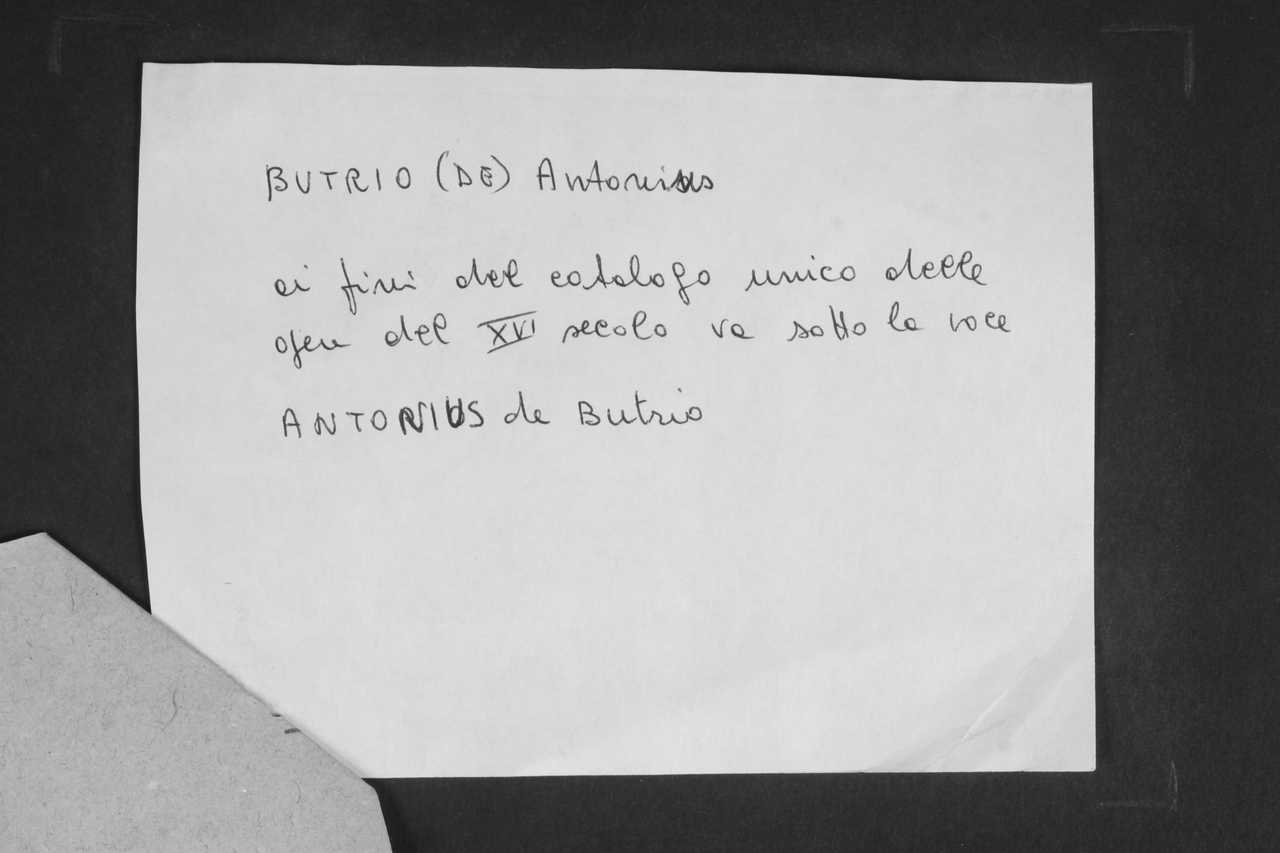 BUTRIO (DE) Antonius
ai fini del catalogo unico delle
opere del XVI secolo va sotto la voce
ANTONIUS de Butrio